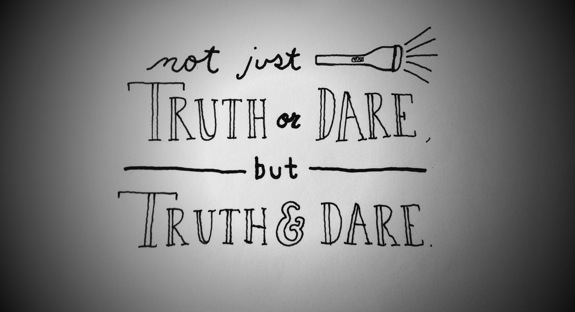 not just
TRUTH or DARE,
but
TRUTH & DARE.